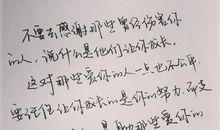 不要去感谢那些曾经伤害你
的人，说什么是他们让你成长。
这对那些爱你的人一点也不公平
要记住让你成长的是你的努力和支
是那些爱你的